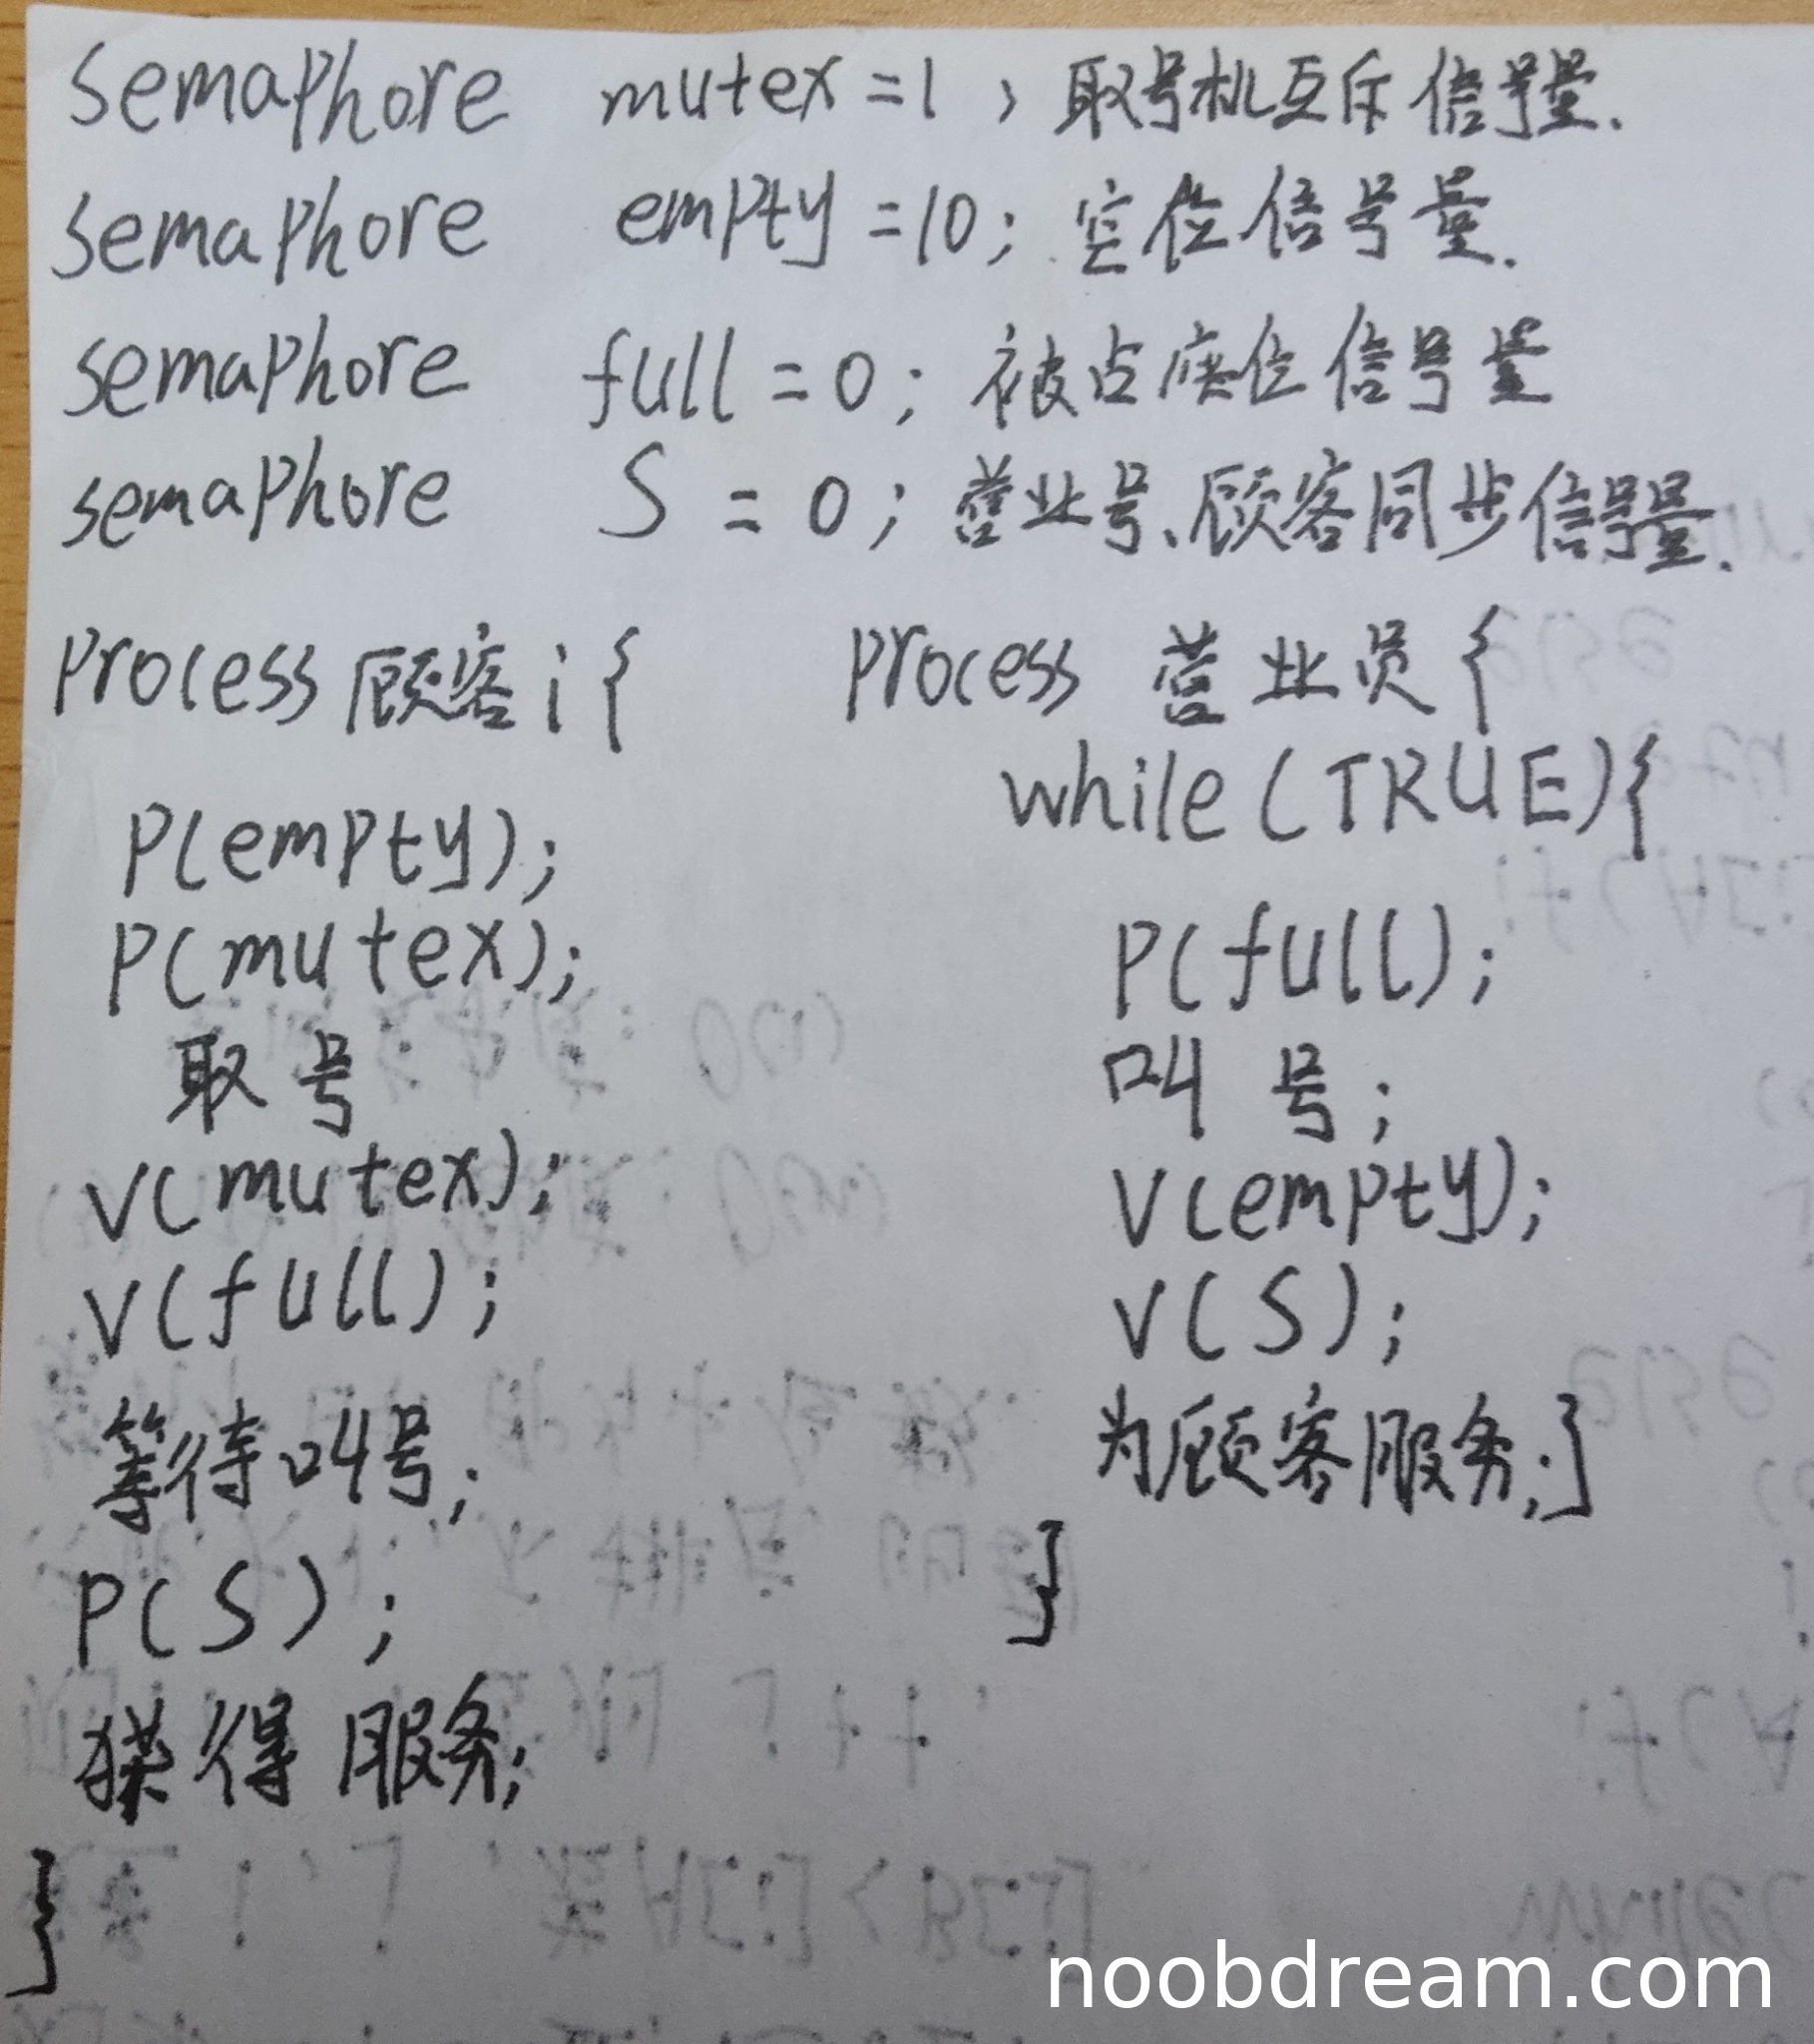 semaphore mutex = 1 ; 取号机互斥信号量.
semaphore empty = 10 ; 空位信号量.
semaphore full = 0 ; 被占座位信号量
semaphore S = 0 ; 营业号、顾客同步信号量.
Process 顾客 i {
P(empty);
P(mutex);
取号
V(mutex);
V(full);
等待叫号;
P(S);
获得服务;
}
process 营业员 {
while (TRUE) {
P(full);
叫号;
V(empty);
V(S);
为顾客服务; }
}
noobdream.com